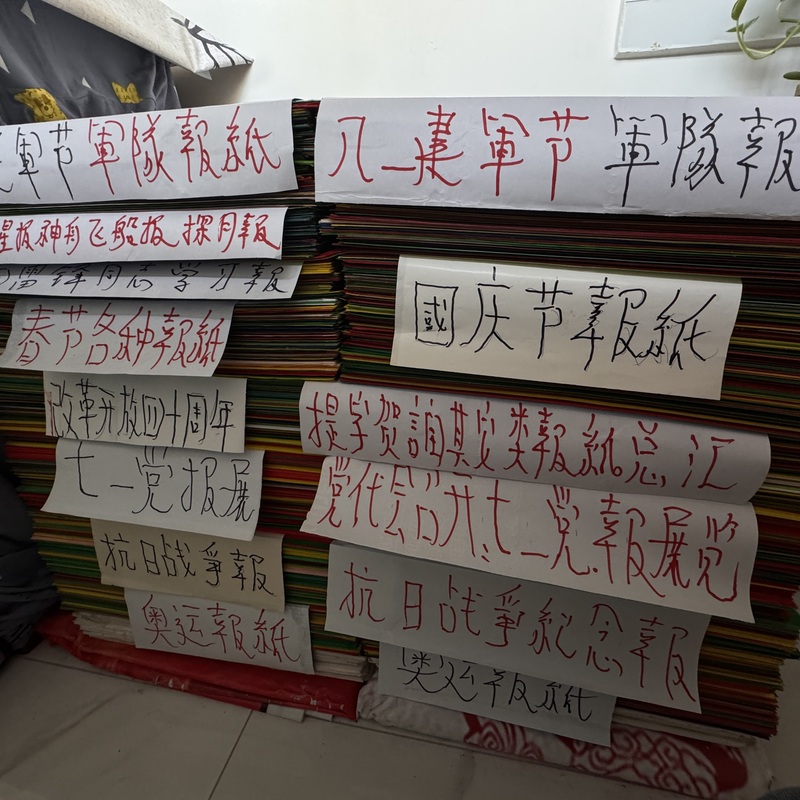 軍节軍隊報紙
星报神舟飞船报探月報
雷锋同志学习報
春节各种報紙
改革开放四十周年
七一党报展
抗日战爭報
奥运報紙
八一建軍节軍隊報
國庆节報紙
類報紙总汇
党代会召开七一党報展览
抗日战爭紀念報
奥运報紙